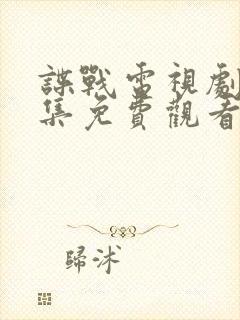 諜戰電視劇
集免費觀看
歸沭